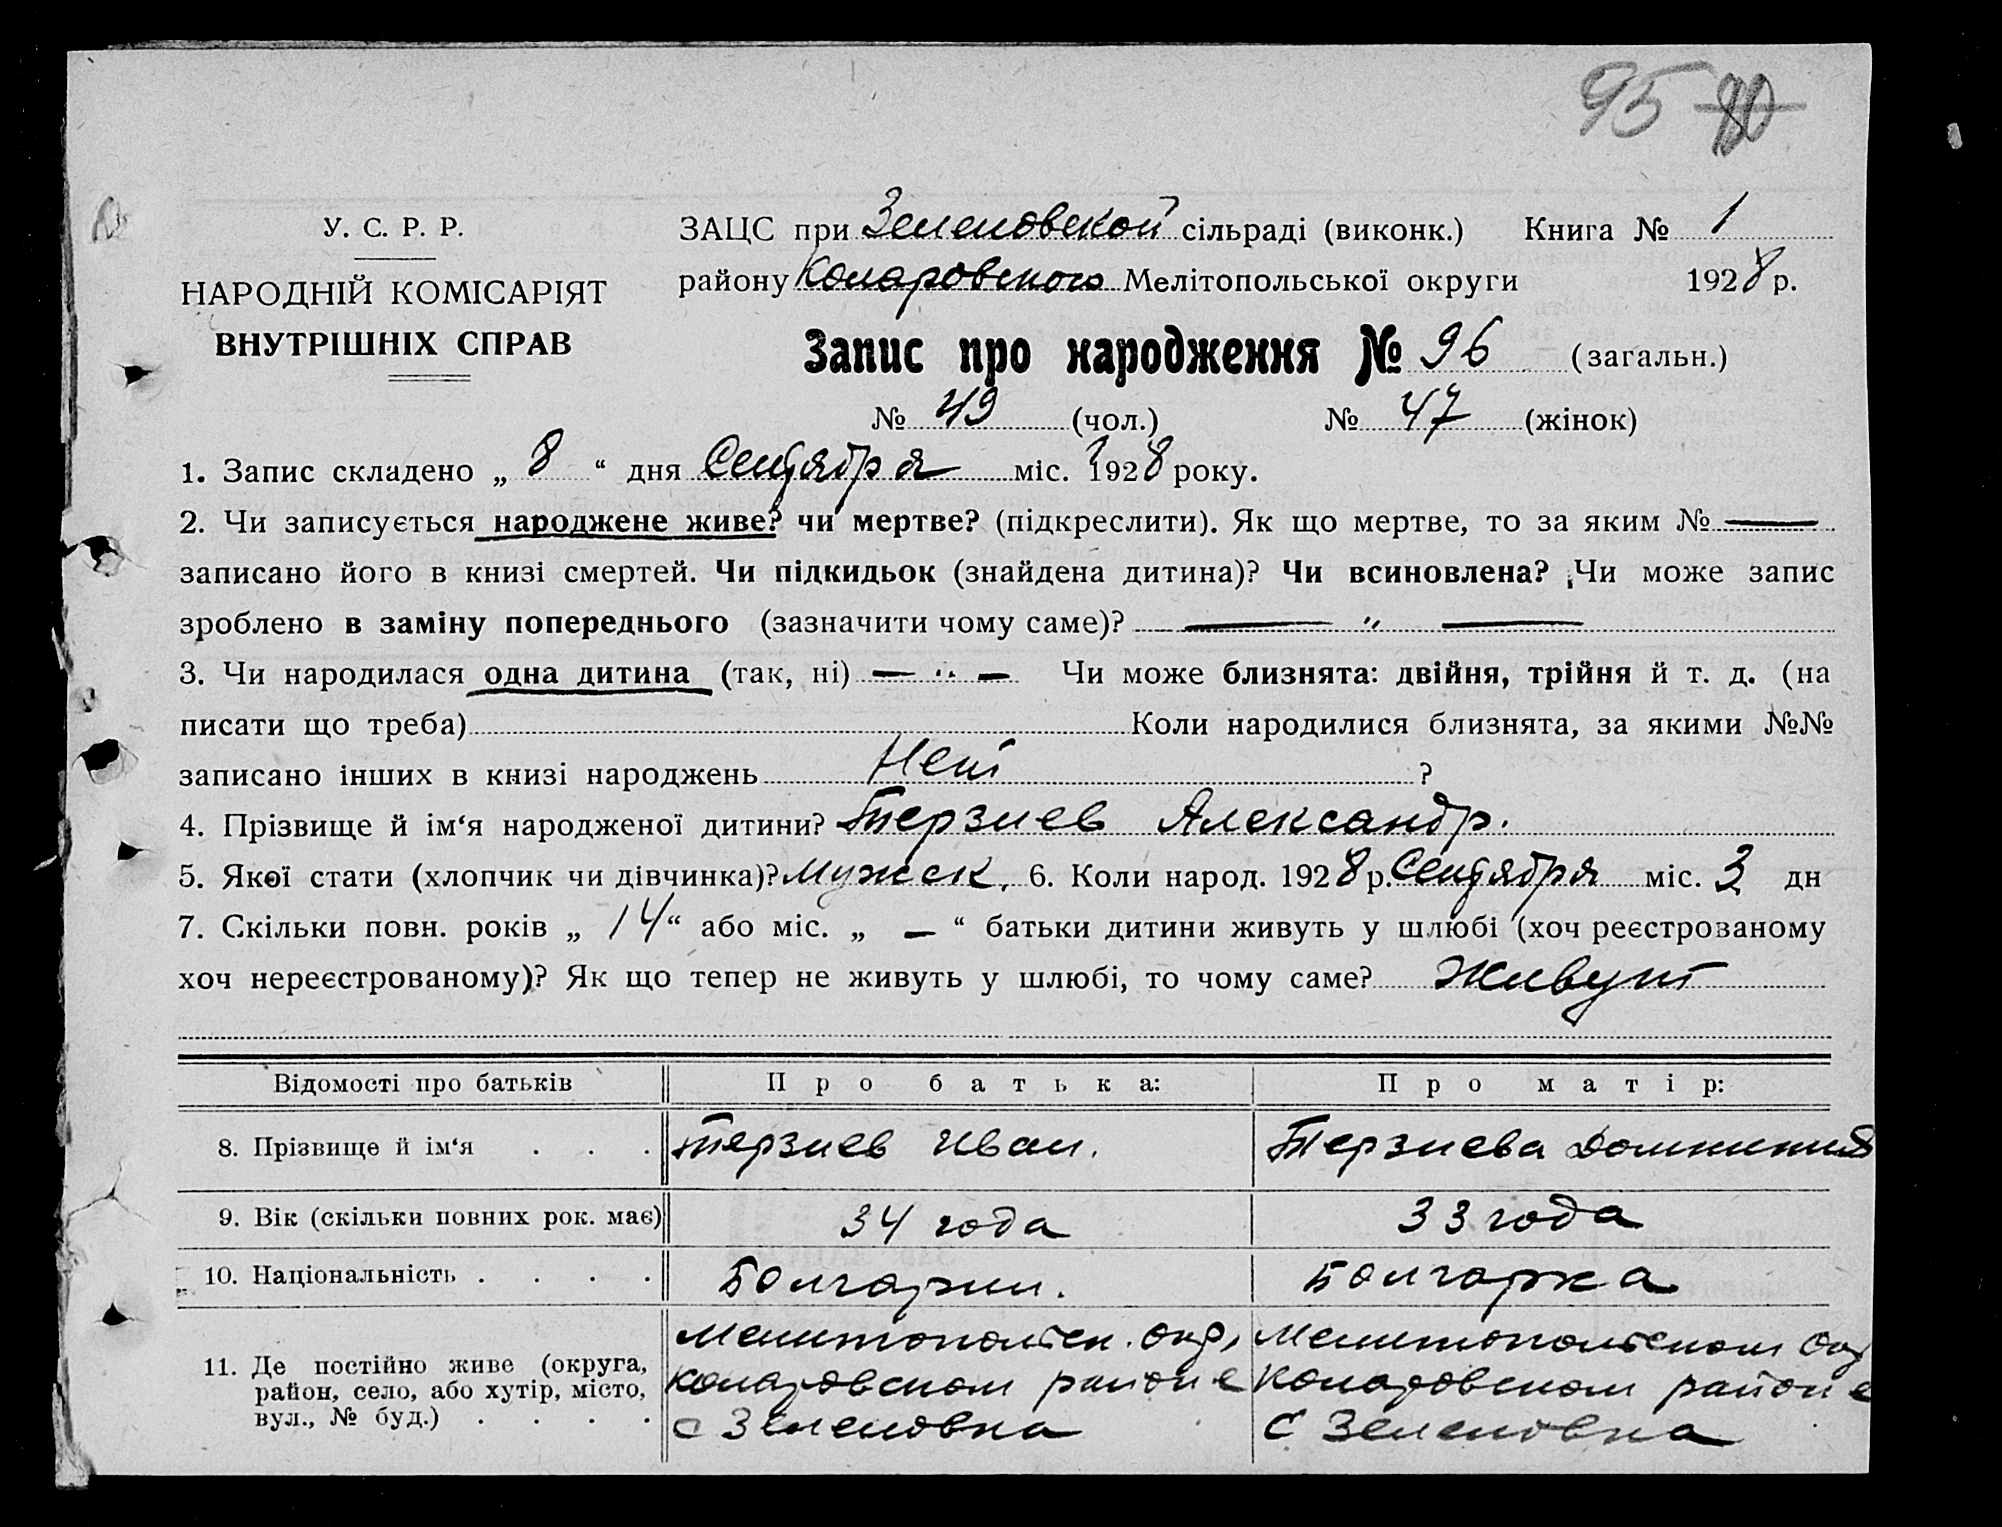 95 80
У. С. Р. Р.
НАРОДНІЙ КОМІСАРІЯТ
ВНУТРІШНІХ СПРАВ
ЗАЦС при Зеленовской сільраді (виконк.) Книга № 1
району Коларовского Мелітопольської округи 1928 р.
Запис про народження № 96 (загальн.)
№ 49 (чол.) № 47 (жінок)
1. Запис складено „ 8 “ дня Сентября міс. 1928 року.
2. Чи записується народжене живе? чи мертве? (підкреслити). Як що мертве, то за яким № —
записано його в книзі смертей. Чи підкидьок (знайдена дитина)? Чи всиновлена? Чи може запис
зроблено в заміну попереднього (зазначити чому саме)? — „ —
3. Чи народилася одна дитина (так, ні) — „ — Чи може близнята: двійня, трійня й т. д. (на
писати що треба) Коли народилися близнята, за якими №№
записано інших в книзі народжень Нет ?
4. Прізвище й ім‘я народженої дитини? Терзиев Александр.
5. Якої стати (хлопчик чи дівчинка)? Мужск. 6. Коли народ. 1928 р. Сентября міс. 3 дн
7. Скільки повн. років „ 14 “ або міс. „ — “ батьки дитини живуть у шлюбі (хоч реєстрованому
хоч нереєстрованому)? Як що тепер не живуть у шлюбі, то чому саме? Живут
Відомості про батьків Про батька: Про матір:
8. Прізвище й ім‘я . . . Терзиев Иван. Терзиева
9. Вік (скільки повних рок. має) 34 года 33 года
10. Національність . . . . Болгарин. Болгарка
11. Де постійно живе (округа, район, село, або хутір, місто, вул., № буд.) . . . .
Мелитопольск. окр, Мелитопольском окр
Коларовском районе Коларовском районе
с Зеленовка с Зеленовка